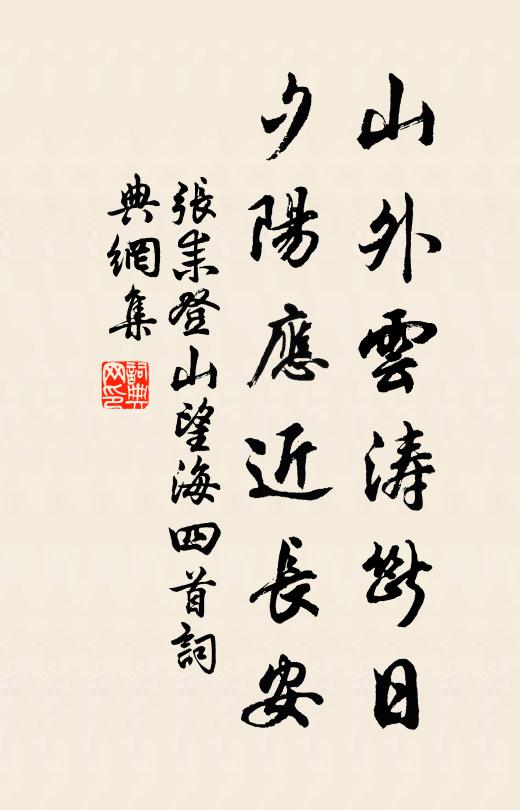 山外雲濤際日
夕陽應近長安
張耒登山望海四首詞
典網集
詞典網印